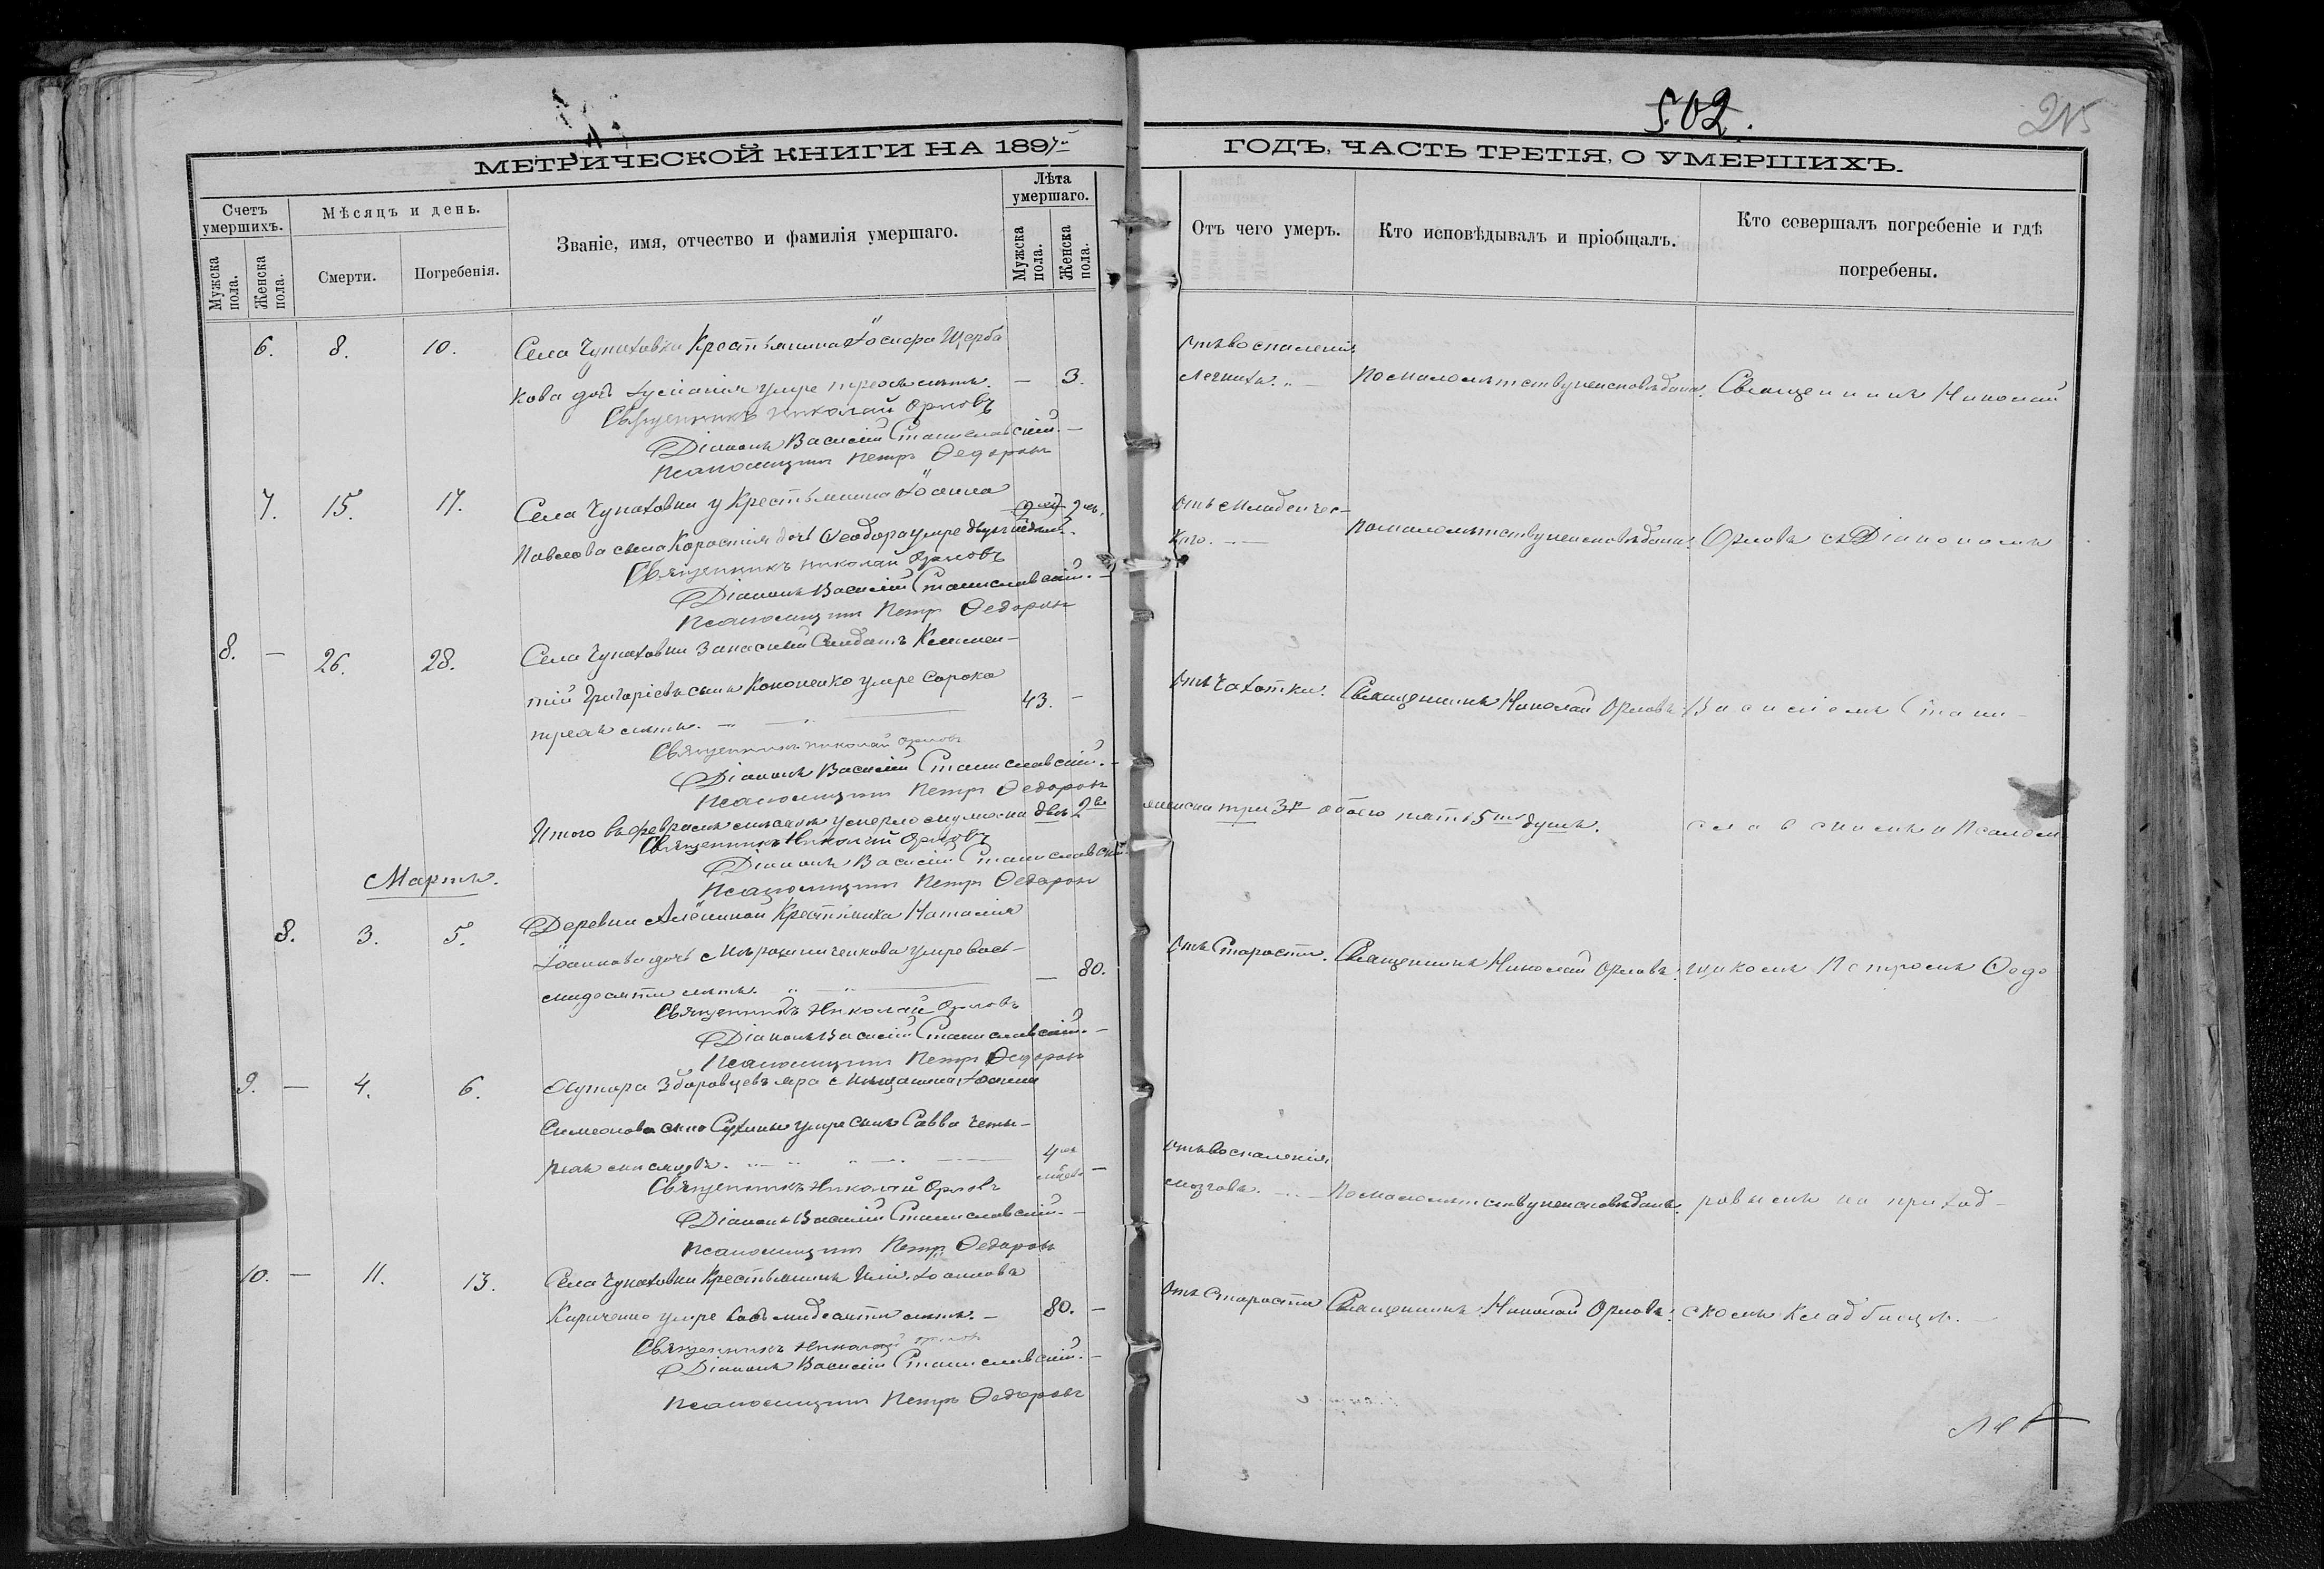 502.
215
МЕТРИЧЕСКОЙ КНИГИ НА 1897й
ГОДЪ, ЧАСТЬ ТРЕТІЯ, О УМЕРШИХЪ.
Счетъ умершихъ.
Мужска пола.
Женска пола.
Мѣсяцъ и день.
Смерти.
Погребенія.
Званіе, имя, отчество и фамилія умершаго.
Лѣта умершаго.
Мужска пола.
Женска пола.
Отъ чего умеръ.
Кто исповѣдывалъ и пріобщалъ.
Кто совершалъ погребеніе и гдѣ
погребены.
6. 8. 10. Села Чупаховки Крестьянина Іосифа Щерба
кова дочь умре трехъ лѣтъ. — 3.
Священникъ Николай Орловъ
Діаконъ Василій Станиславскій.
Псаломщикъ Петръ Ѳедоровъ
Отъ воспаленія
легкихъ. По малолѣтству неисповѣдана. Священникъ Николай
7. 15. 17. Села Чупаховки у Крестьянина Іоанна
Павлова сына Коростія дочь Ѳеодора умре двухъ
Священникъ Николай Орловъ
Діаконъ Василій Станиславскій.
Псаломщикъ Петръ Ѳедоровъ
Отъ младенчес-
каго. По малолѣтству неисповѣдана. Орловъ съ Діакономъ
8. — 26. 28. Села Чупаховки Запасный Солдатъ Климен-
тій Григоріевъ сынъ Кононенко умре сорока
трехъ лѣтъ. 43. —
Священникъ Николай Орловъ
Діаконъ Василій Станиславскій.
Псаломщикъ Петръ Ѳедоровъ
Отъ чахотки. Священникъ Николай Орловъ. Василіемъ Стани-
Итого въ февралѣ мѣсяцѣ умерло мужеска два 2
женска три 3 обоего пять 5 душъ.
славскимъ и Псалом
Священникъ Николай Орловъ
Діаконъ Василій Станиславскій
Псаломщикъ Петръ Ѳедоровъ
Мартъ.
8. 3. 5. Деревни Алёшиной Крестьянка Наталія
Іоаннова дочь умре вось-
мидесяти лѣтъ. — 80.
Священникъ Николай Орловъ
Діаконъ Василій Станиславскій.
Псаломщикъ Петръ Ѳедоровъ
Отъ старости. Священникъ Николай Орловъ. щикомъ Петромъ Ѳедо
9. — 4. 6. Хутора мѣщанина Іоанна
Симеонова сына Сухины умре сынъ Савва четы-
рехъ мѣсяцевъ. 4 —
Священникъ Николай Орловъ
Діаконъ Василій Станиславскій.
Псаломщикъ Петръ Ѳедоровъ
Отъ воспаленія
мозговъ. По малолѣтству неисповѣданъ. ровымъ на приход-
10. — 11. 13. Села Чупаховки Крестьянинъ Іоанновъ
Кириченко умре восьмидесяти лѣтъ. 80. —
Священникъ Николай Орловъ
Діаконъ Василій Станиславскій.
Псаломщикъ Петръ Ѳедоровъ
Отъ старости Священникъ Николай Орловъ. скомъ Кладбищѣ.